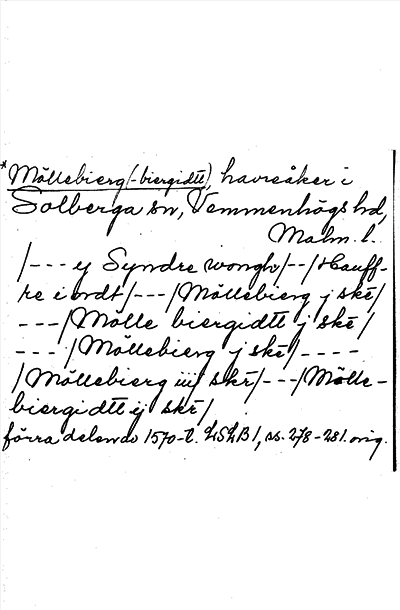 *Möllebierg (-biergidtt), havreåker i
Solberga sn, Vemmenhögs hd,
Malm. l.
/--- ij Syndre wongh/--/Hauff-
re i ordt/---/Möllebierg j ske/
---/Mölle biergidtt j ske/
---/Möllebierg j ske/----
/Möllebierg iiij ske/---/Mölle-
biergidtt ij ske/
förra delen av 1570-t. LSLB 1, ss. 278-281. orig.